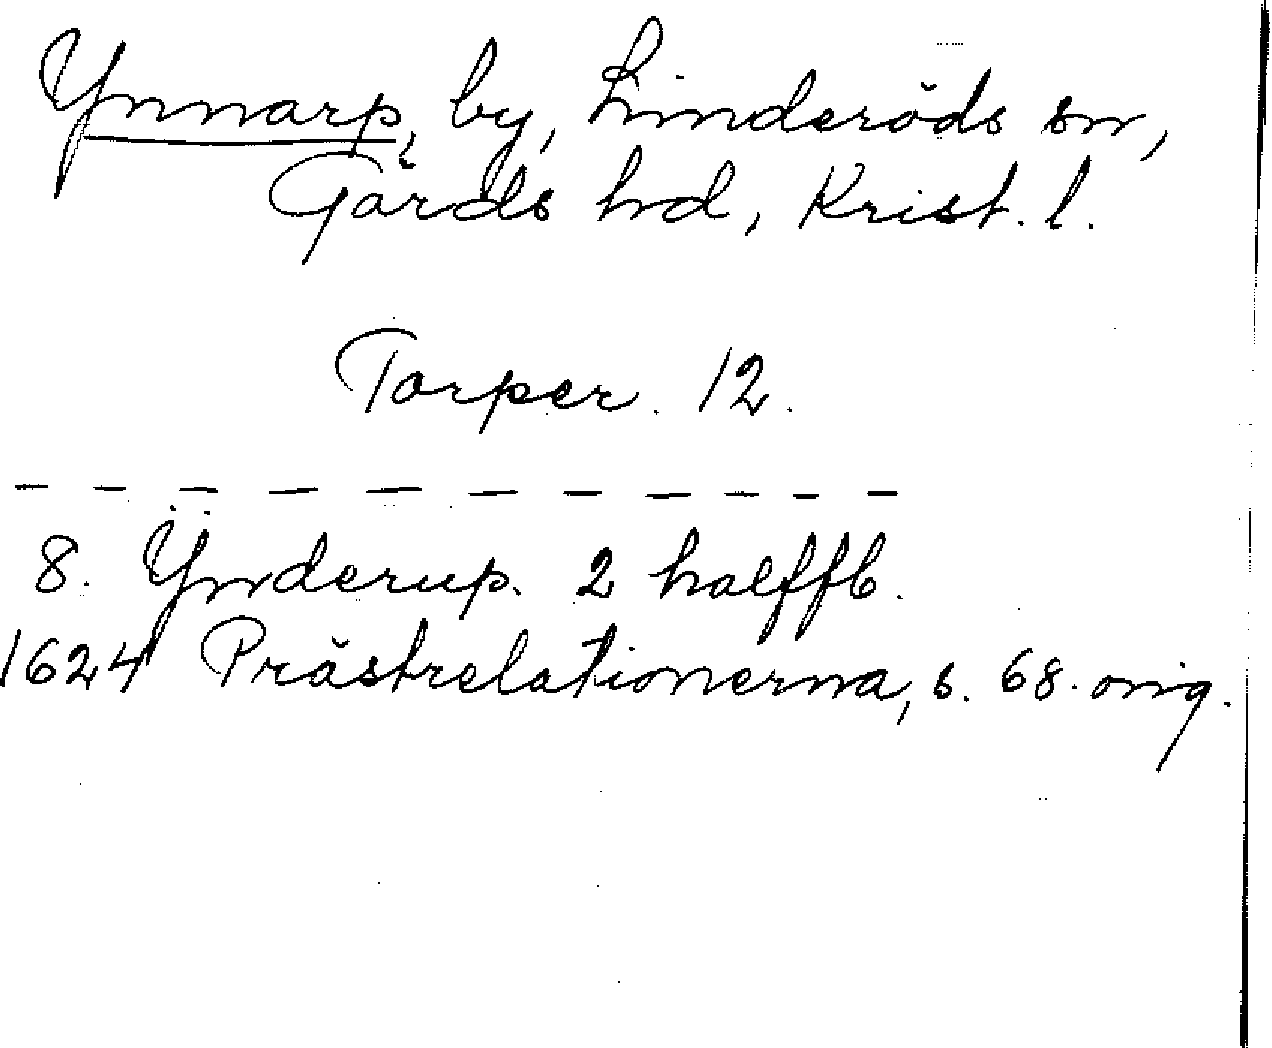 Ynnarp, by, Linderöds sn,
Gärds hd, Krist. l.
Torper. 12.
8. Ÿnderup. 2 halffb.
1624 Prästrelationerna, s. 68. orig.